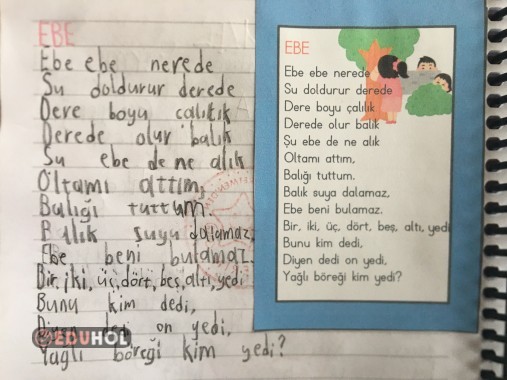 EBE
Ebe ebe nerede
Su doldurur derede
Dere boyu çalıkık
Derede olur balık
Su ebe de ne alık
Oltamı attım,
Balığı tuttum.
Balık suyu dalamaz,
Ebe beni bulamaz.
Bir, iki, üç, dört, beş, altı, yedi
Bunu kim dedi,
Diyen on yedi,
Yağlı böreği kim yedi?
EDUHOL
EBE
Ebe ebe nerede
Su doldurur derede
Dere boyu çalılık
Derede olur balık
Şu ebe de ne alık
Oltamı attım,
Balığı tuttum.
Balık suya dalamaz,
Ebe beni bulamaz.
Bir, iki, üç, dört, beş, altı, yedi
Bunu kim dedi,
Diyen dedi on yedi,
Yağlı böreği kim yedi?